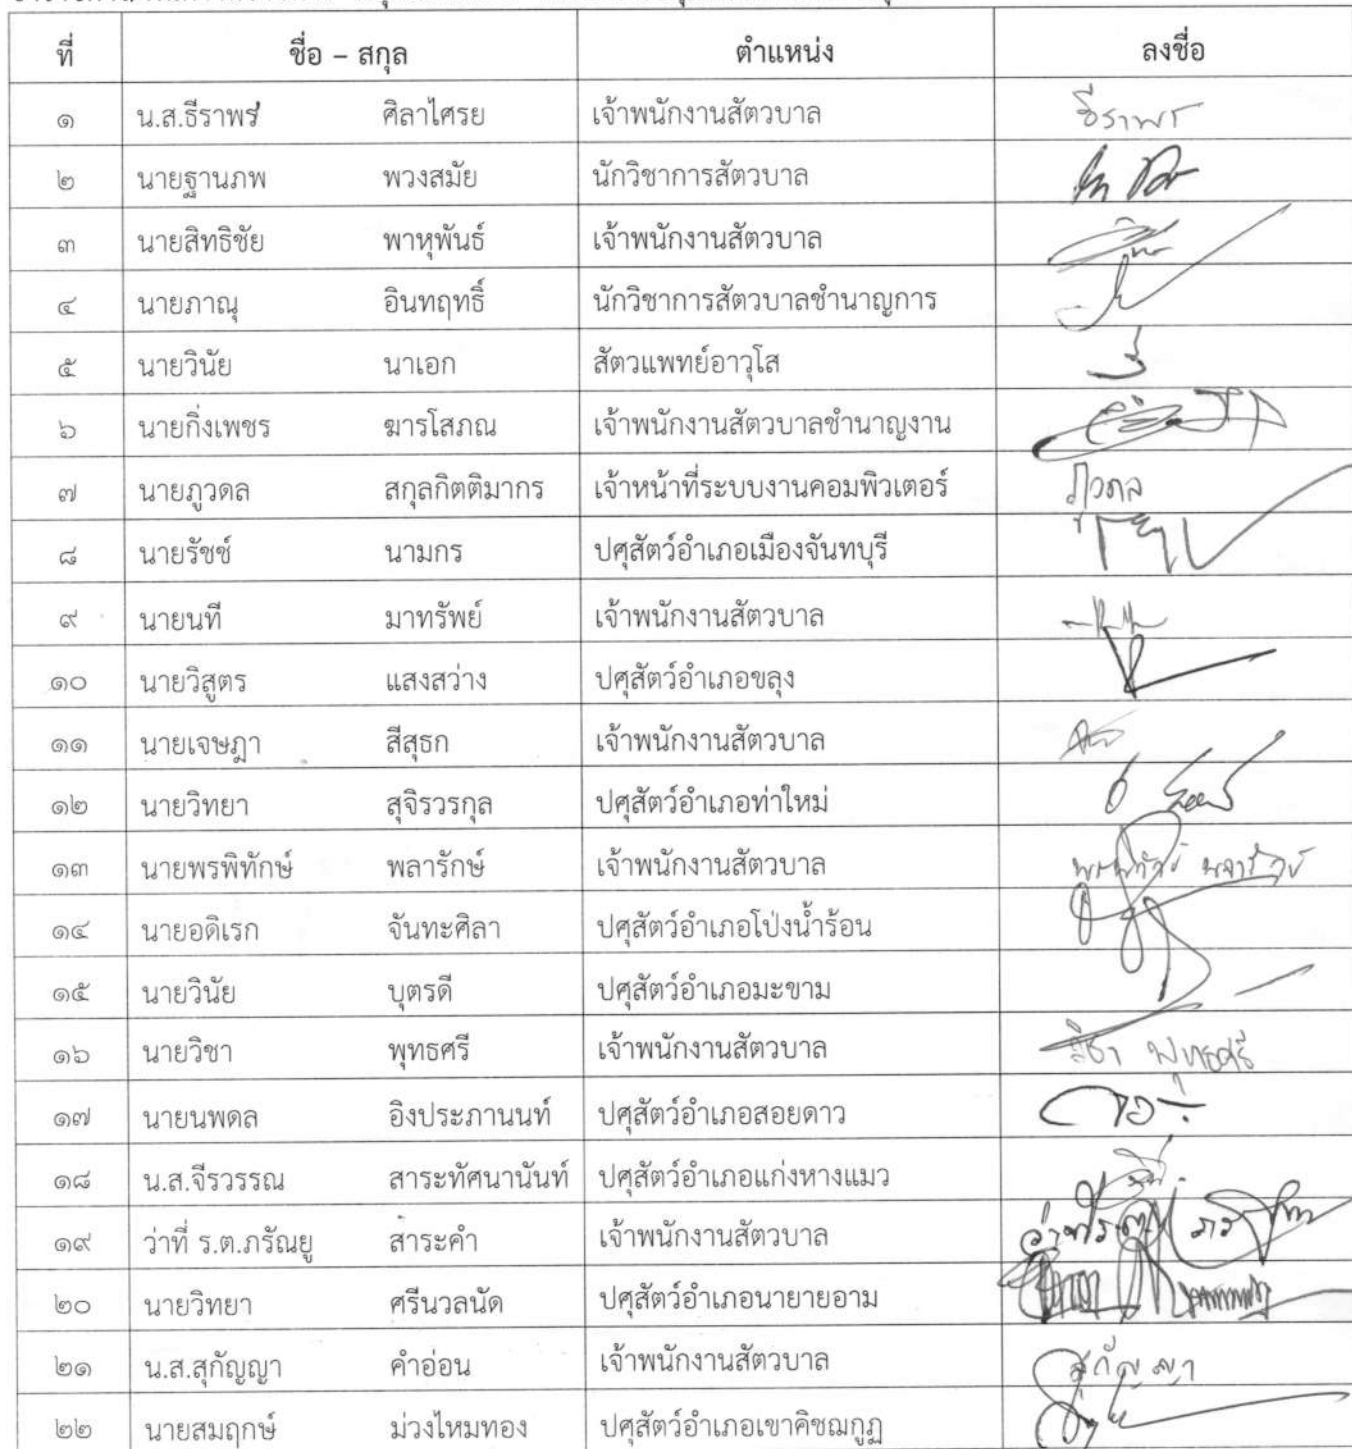 ที่ ชื่อ – สกุล ตำแหน่ง ลงชื่อ
๑ น.ส.ธีราพร ศิลาไศรย เจ้าพนักงานสัตวบาล ธีราพร
๒ นายฐานภพ พวงสมัย นักวิชาการสัตวบาล
๓ นายสิทธิชัย พาหุพันธ์ เจ้าพนักงานสัตวบาล
๔ นายภาณุ อินทฤทธิ์ นักวิชาการสัตวบาลชำนาญการ
๕ นายวินัย นาเอก สัตวแพทย์อาวุโส
๖ นายกิ่งเพชร ฆารโสภณ เจ้าพนักงานสัตวบาลชำนาญงาน
๗ นายภูวดล สกุลกิตติมากร เจ้าหน้าที่ระบบงานคอมพิวเตอร์ ภูวดล
๘ นายรัชช์ นามกร ปศุสัตว์อำเภอเมืองจันทบุรี
๙ นายนที มาทรัพย์ เจ้าพนักงานสัตวบาล
๑๐ นายวิสูตร แสงสว่าง ปศุสัตว์อำเภอขลุง
๑๑ นายเจษฎา สีสุธก เจ้าพนักงานสัตวบาล
๑๒ นายวิทยา สุจิรวรกุล ปศุสัตว์อำเภอท่าใหม่
๑๓ นายพรพิทักษ์ พลารักษ์ เจ้าพนักงานสัตวบาล พรพิทักษ์ พลารักษ์
๑๔ นายอดิเรก จันทะศิลา ปศุสัตว์อำเภอโป่งน้ำร้อน
๑๕ นายวินัย บุตรดี ปศุสัตว์อำเภอมะขาม
๑๖ นายวิชา พุทธศรี เจ้าพนักงานสัตวบาล วิชา พุทธศรี
๑๗ นายนพดล อิงประภานนท์ ปศุสัตว์อำเภอสอยดาว
๑๘ น.ส.จีรวรรณ สาระทัศนานันท์ ปศุสัตว์อำเภอแก่งหางแมว
๑๙ ว่าที่ ร.ต.ภรัณยู สาระคำ เจ้าพนักงานสัตวบาล
๒๐ นายวิทยา ศรีนวลนัด ปศุสัตว์อำเภอนายายอาม
๒๑ น.ส.สุกัญญา คำอ่อน เจ้าพนักงานสัตวบาล สุกัญญา
๒๒ นายสมฤกษ์ ม่วงไหมทอง ปศุสัตว์อำเภอเขาคิชฌกูฏ